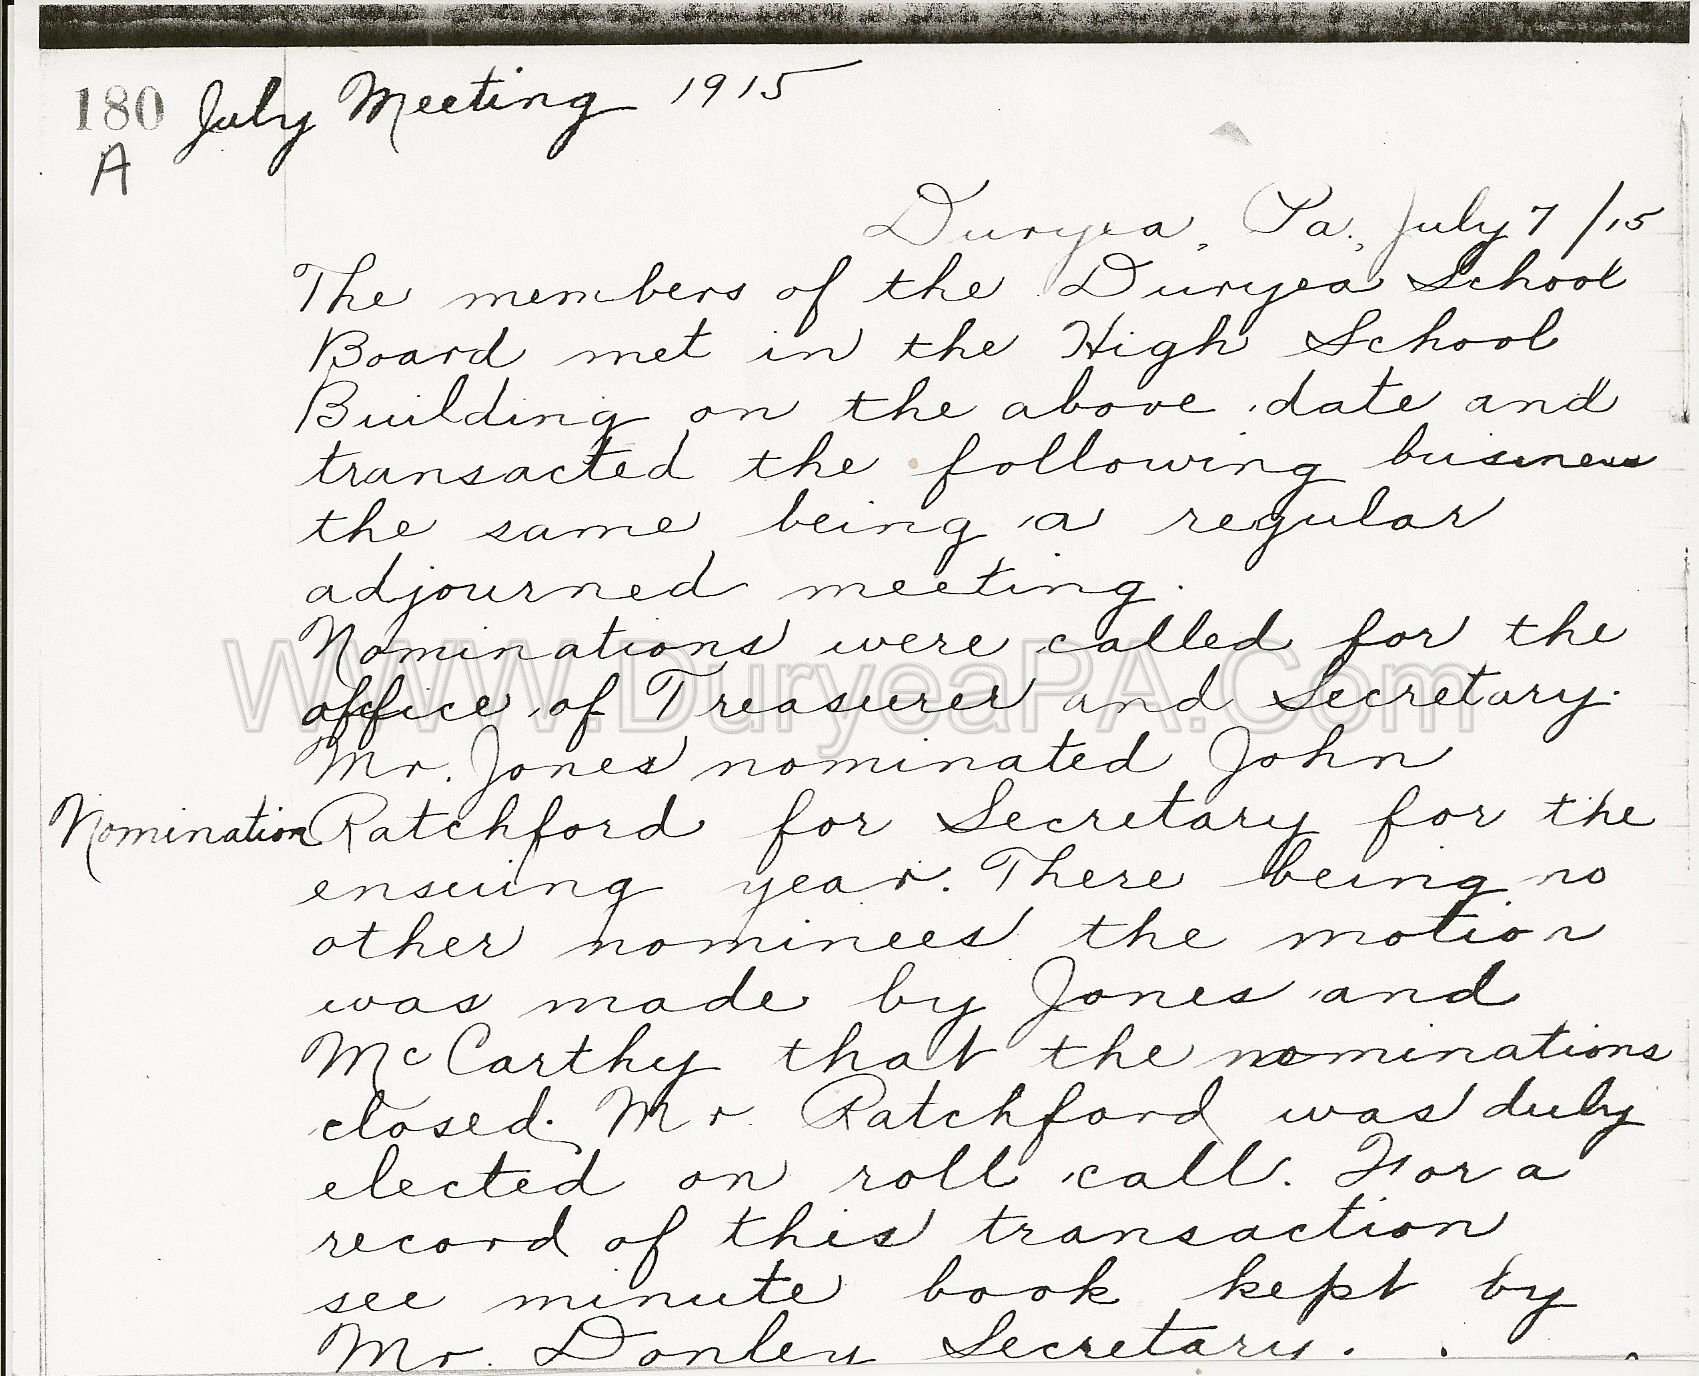 180 July Meeting 1915
A
Duryea, Pa., July 7 /15
The members of the Duryea School
Board met in the High School
Building on the above date and
transacted the following business
the same being a regular
adjourned meeting.
Nominations were called for the
office of Treasurer and Secretary.
WWW.DuryeaPA.Com
Mr. Jones nominated John
Nomination Ratchford for Secretary for the
ensuing year. There being no
other nominees the motion
was made by Jones and
McCarthy that the nominations
closed. Mr. Ratchford was duly
elected on roll call. For a
record of this transaction
see minute book kept by
Mr. Donley Secretary.